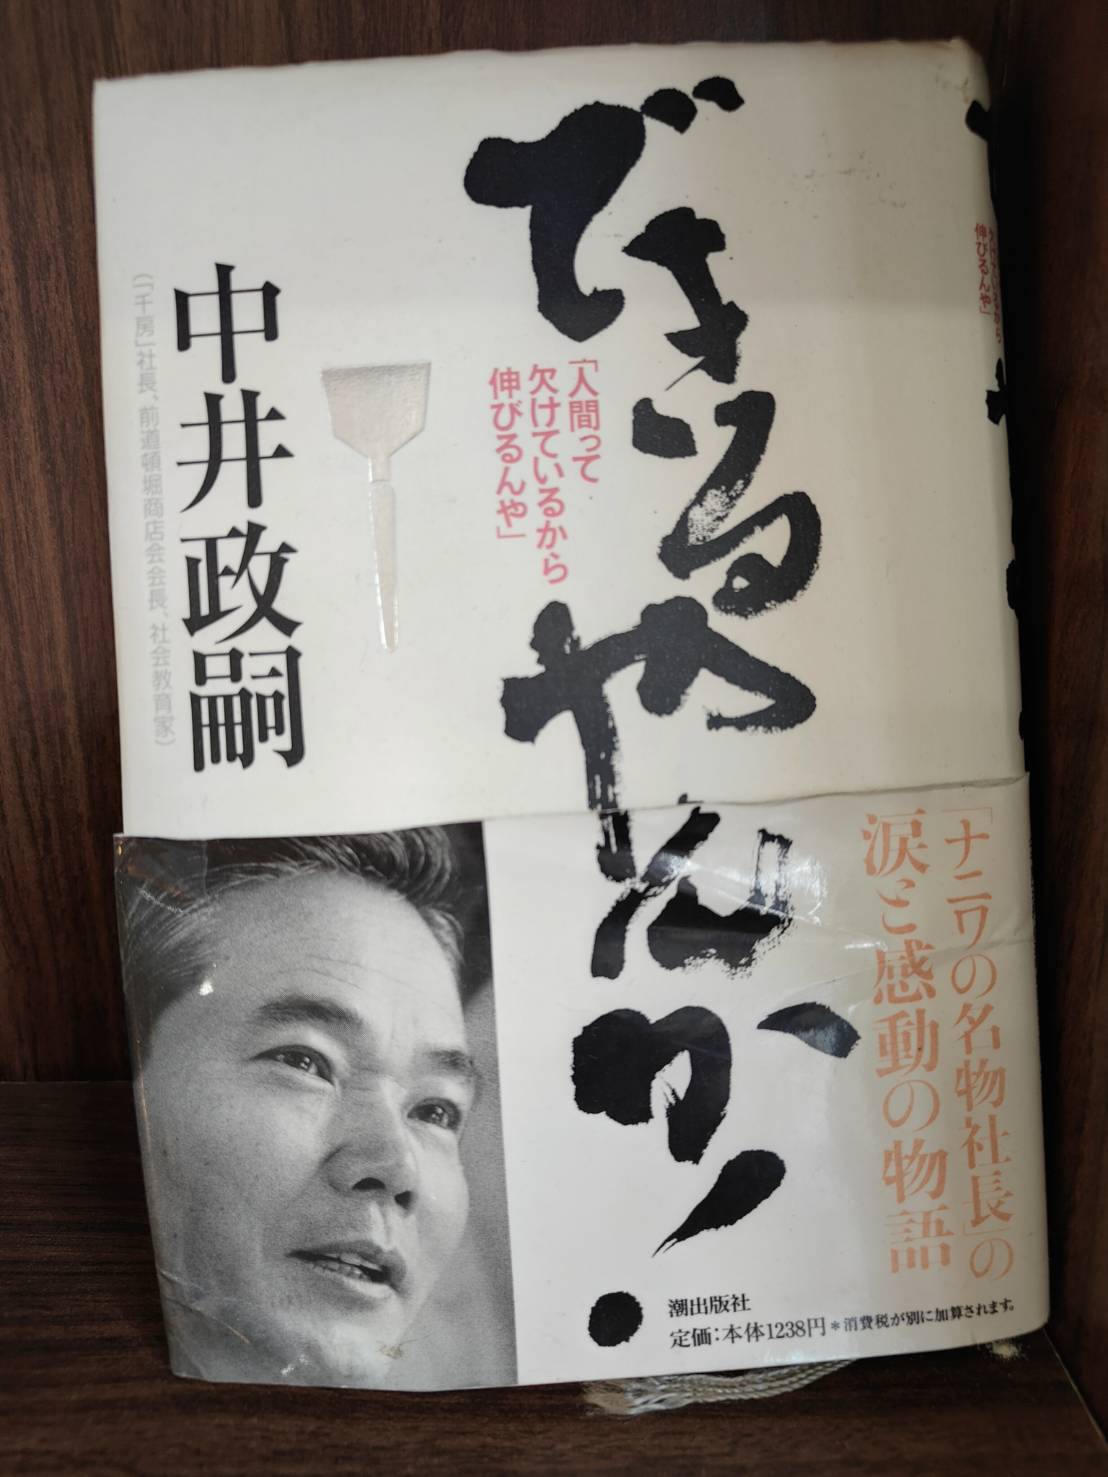 できるやんか!
「人間って
欠けているから
伸びるんや」
中井政嗣
(「千房」社長、前道頓堀商店会会長、社会教育家)
「ナニワの名物社長」の
涙と感動の物語
潮出版社
定価:本体1238円*消費税が別に加算されます。
欠けているから
伸びるんや」